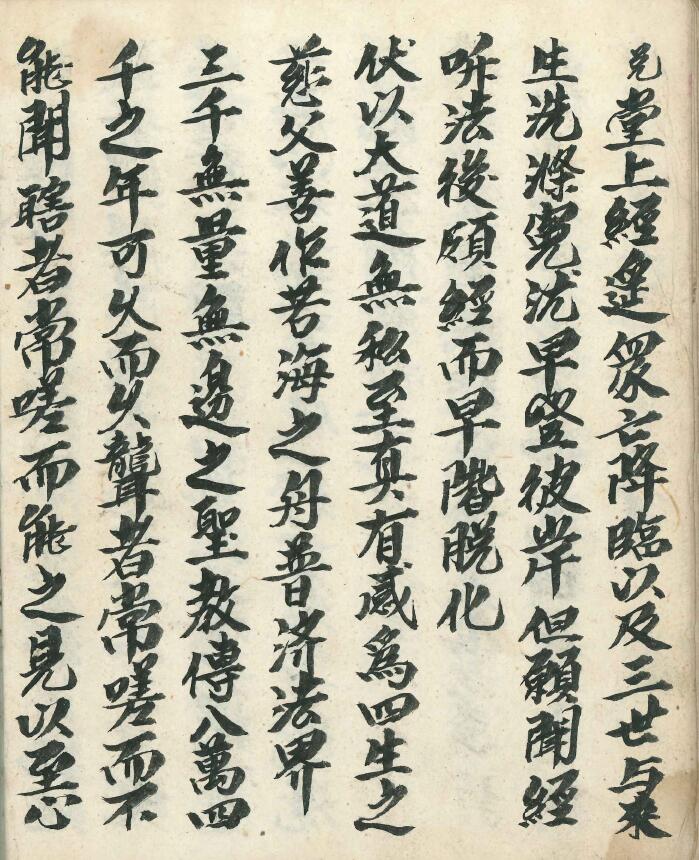 堂上經筵眾亡降臨以及三世与來
生洗滌寃早登彼岸但願聞經
听法後頋經而早階脱化
伏以大道無私至真有感爲四生之
慈父善作苦海之舟普济法界
三千無量無邊之聖教傳八萬四
千之年可久而久聾者常嗟而不
能聞瞎者常嗟而能之見以至心